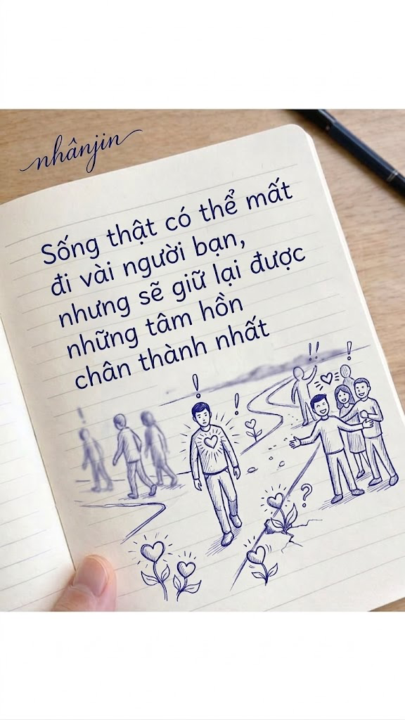 nhânjin
Sống thật có thể mất
đi vài người bạn,
nhưng sẽ giữ lại được
những tâm hồn
chân thành nhất
! ! !! !
?